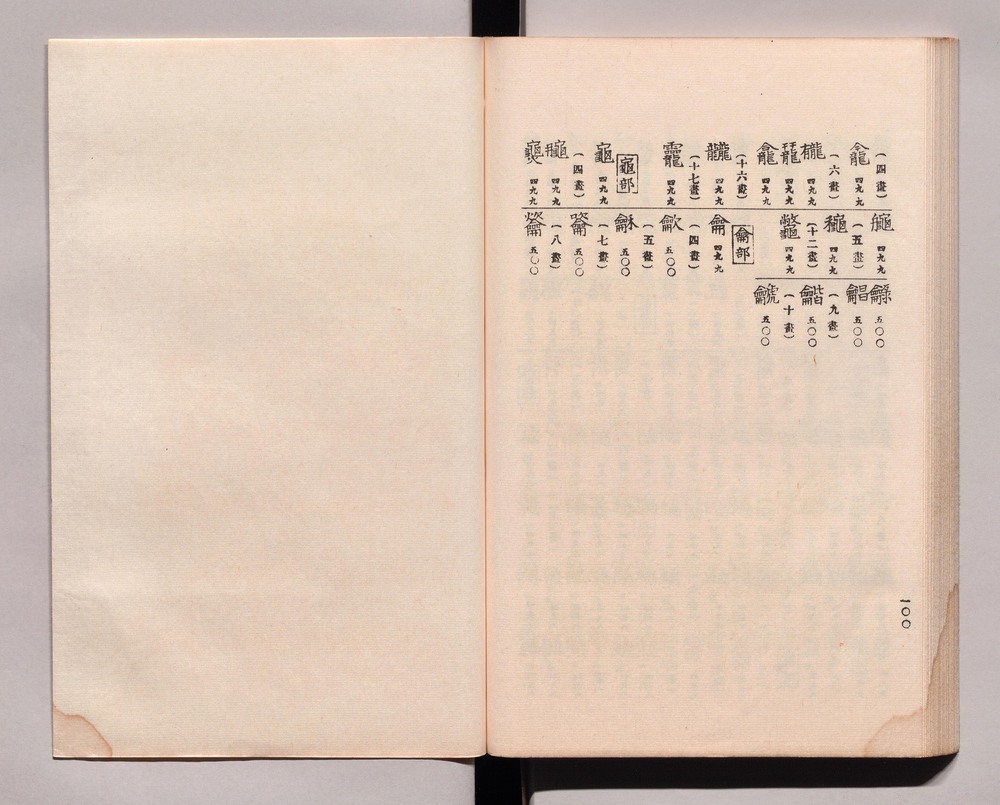 (四畫)
四九九
(六畫)
龓 四九九
四九九
龕 四九九
(十六畫)
龖 四九九
(十七畫)
龗 四九九
龜部
龜 四九九
(四畫)
四九九
四九九
四九九
(五畫)
龝 四九九
(十二畫)
四九九
龠部
龠 四九九
(四畫)
龡 五〇〇
(五畫)
龢 五〇〇
(七畫)
五〇〇
(八畫)
五〇〇
龣 五〇〇
五〇〇
(九畫)
龤 五〇〇
(十畫)
五〇〇
一〇〇